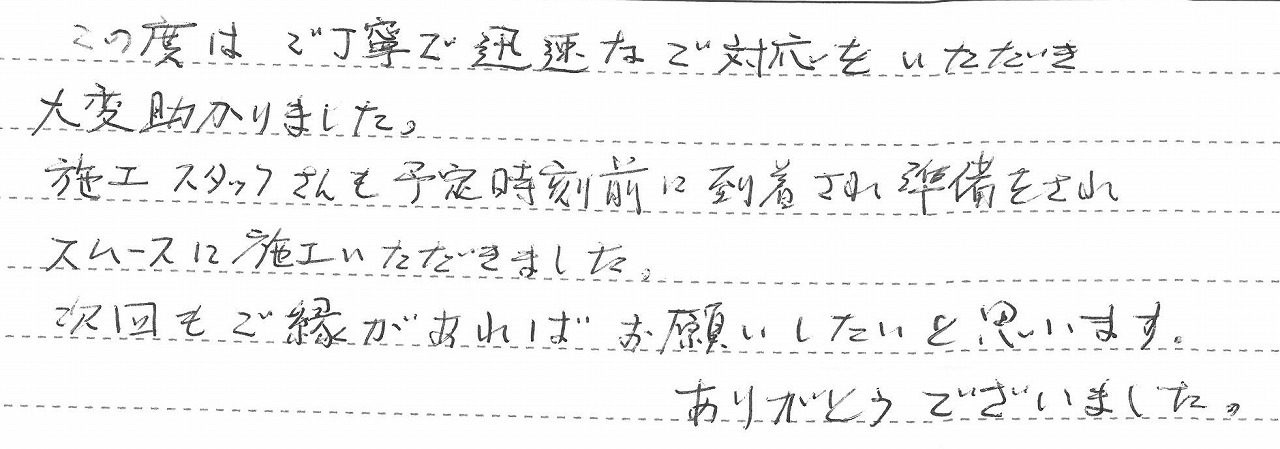 この度は ご丁寧で迅速なご対応をいただき
大変助かりました。
施工スタッフさんも予定時刻前に到着され準備をされ
スムースに施工いただきました。
次回もご縁があればお願いしたいと思います。
ありがとうございました。